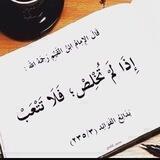 قال الإمام ابن القيم رحمه الله :
إِذَا لَمْ تُخْلِصْ؛ فَلَا تَتْعَبْ
بدائع الفوائد (٢٣٥/٣)